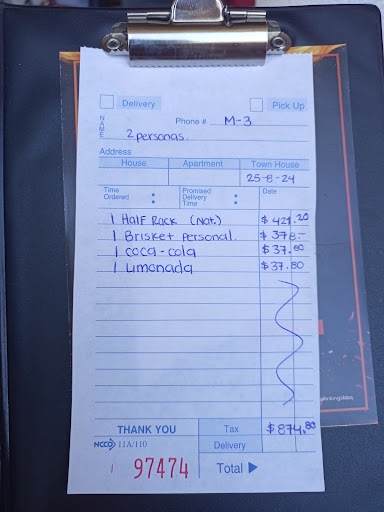 Delivery Pick Up
NAME
Phone # M-3
2 personas.
Address
House Apartment Town House
25-8-24
Time Ordered : : Promised Delivery Time : : Date
1 Half Rack (Nat.) $421.20
1 Brisket personal. $378.-
1 coca-cola $37.80
1 Limonada $37.80
THANK YOU Tax $874.80
NCCO 11A/110 Delivery
1 97474 Total